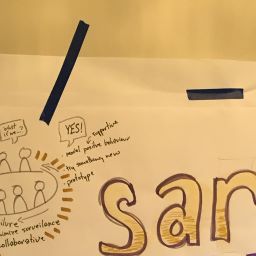 what if we...?
YES!
supportive
model positive behaviour
try something new
prototype
surveillance
collaborative
sar